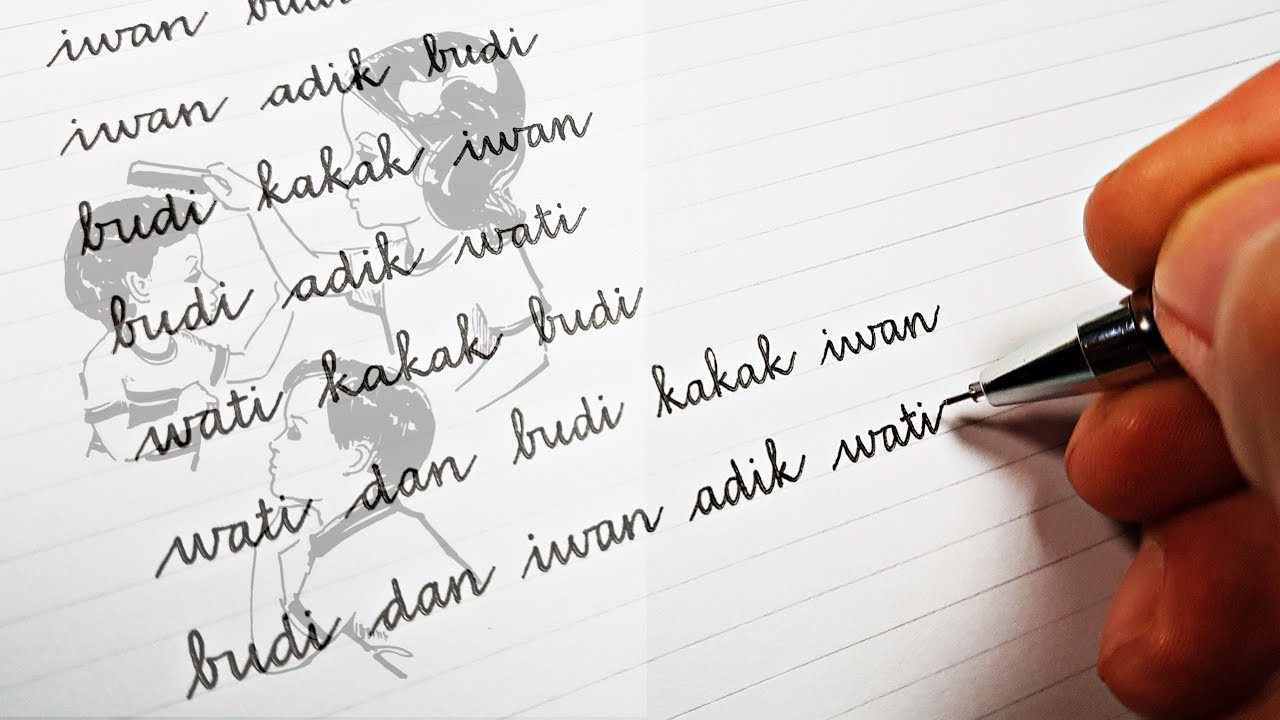 iwan
iwan adik budi
budi kakak iwan
budi adik wati
wati kakak budi
wati dan budi kakak iwan
budi dan iwan adik wati